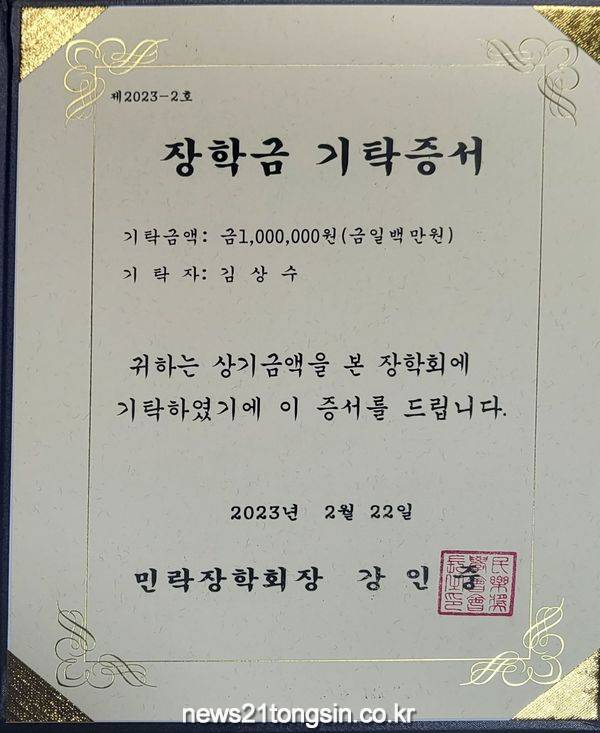 제2023-2호
장학금 기탁증서
기탁금액: 금1,000,000원(금일백만원)
기 탁 자: 김 상 수
귀하는 상기금액을 본 장학회에
기탁하였기에 이 증서를 드립니다.
2023년 2월 22일
민락장학회장 강 인 중
news21tongsin.co.kr